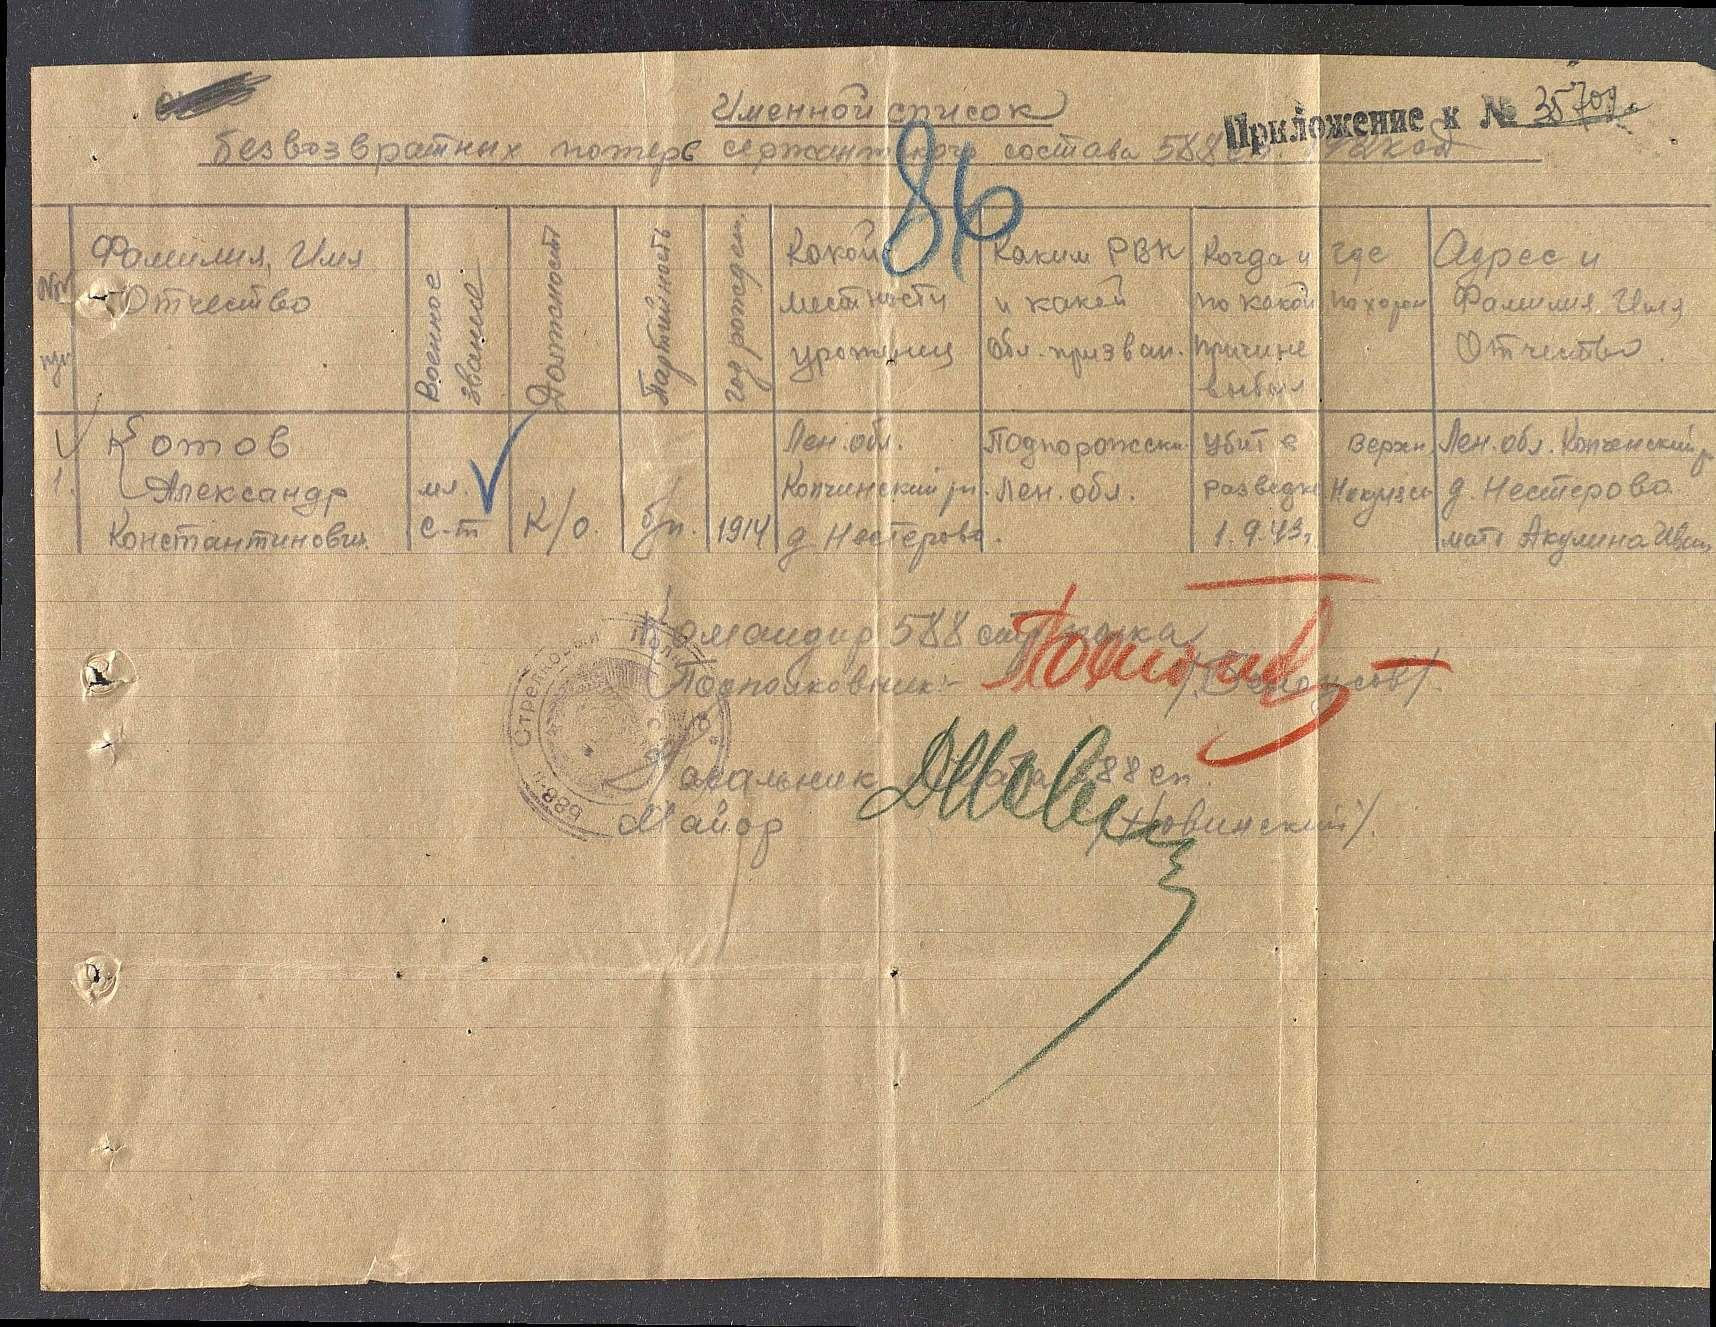 Именной список
Приложение к № 35701с
безвозвратных потерь сержантского состава 588 сп.
86
№№ п/п
Фамилия, Имя Отчество
Военное звание
Должность
Партийность
год рожден.
Какой местности уроженец
Каким РВК и какой обл. призван.
Когда и по какой причине выбыл
где похорон
Адрес и Фамилия Имя Отчество.
1.
Котов Александр Константинович.
мл. с-т
к/о.
б/п.
1914
Лен. обл. Копчинский рн. д. Нестерово.
Подпорожски Лен. обл.
убит в разведке 1. 9. 43г.
Верхн
Лен. обл. Копченский р д. Нестерово мать Акулина Иван
Командир 588 стр. полка
Подполковник:-
Начальник штаба 588 сп.
Майор /Новинский/.
588-й Стрелковый Полк